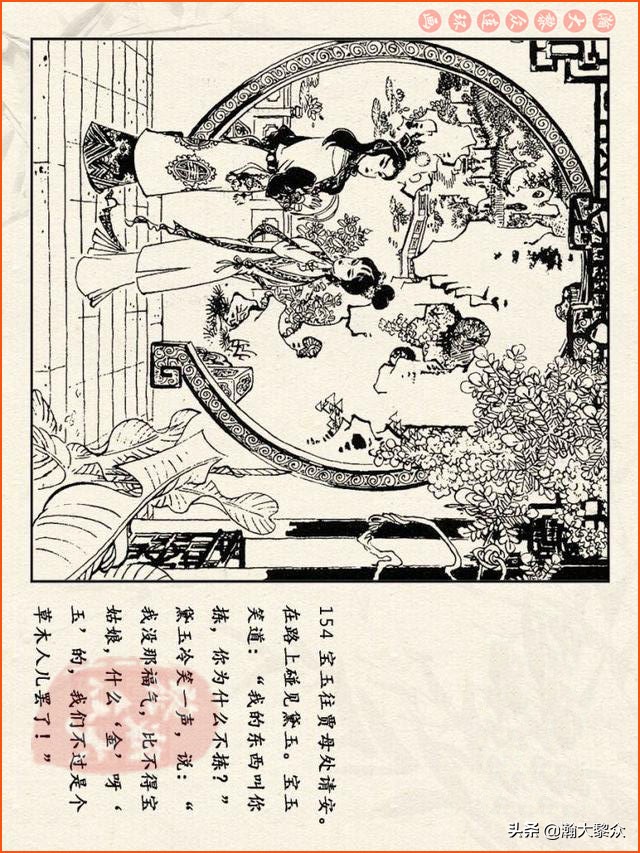 瀚大黎众连环画
154 宝玉往贾母处请安。
在路上碰见黛玉。宝玉
笑道：“我的东西叫你
拣，你为什么不拣？”
黛玉冷笑一声，说：“
我没那福气，比不得宝
姑娘，什么‘金’呀‘
玉’的，我们不过是个
草木人儿罢了！”
头条 @瀚大黎众